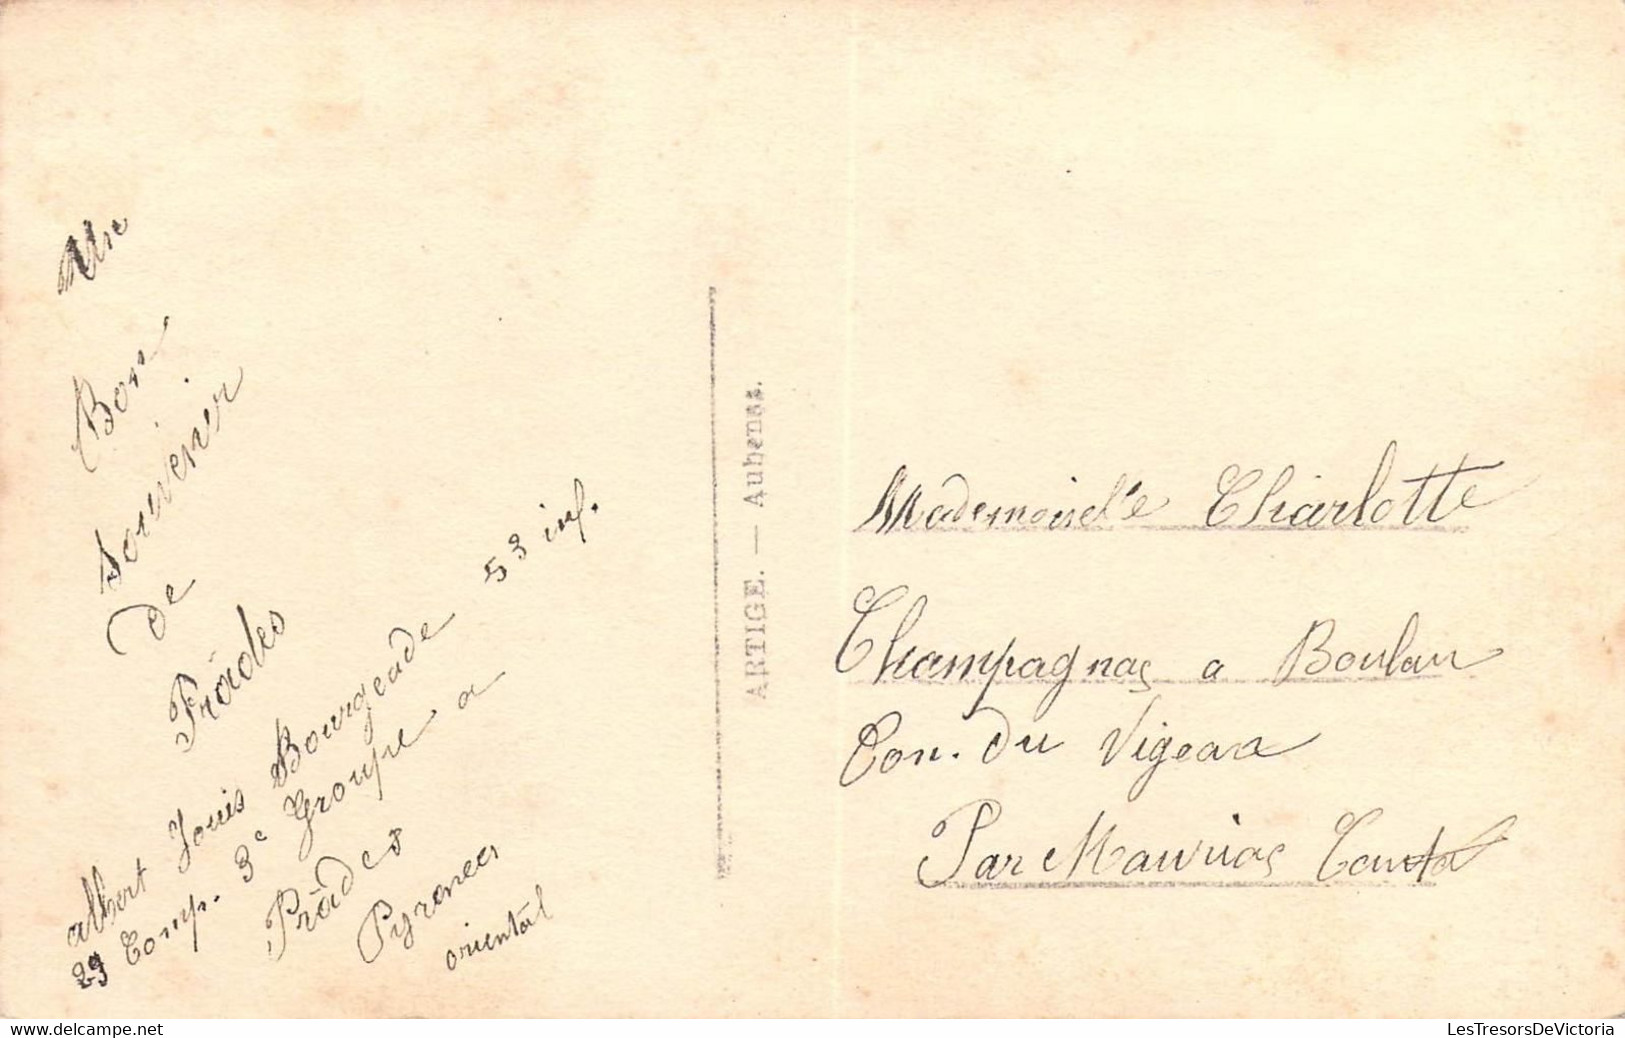 Un
Bon
Souvenir
de
Prâdes
Albert Louis Bourgeade 53 inf.
29 Comp. 3e Groupe a
Prâdes
Pyrenees
oriental
ARTIGE. — Aubenas.
Mademoiselle Charlotte
Champagnac a Boulan
Con. du Vigeax
Par Mauriac Cantal
www.delcampe.net
LesTresorsDeVictoria